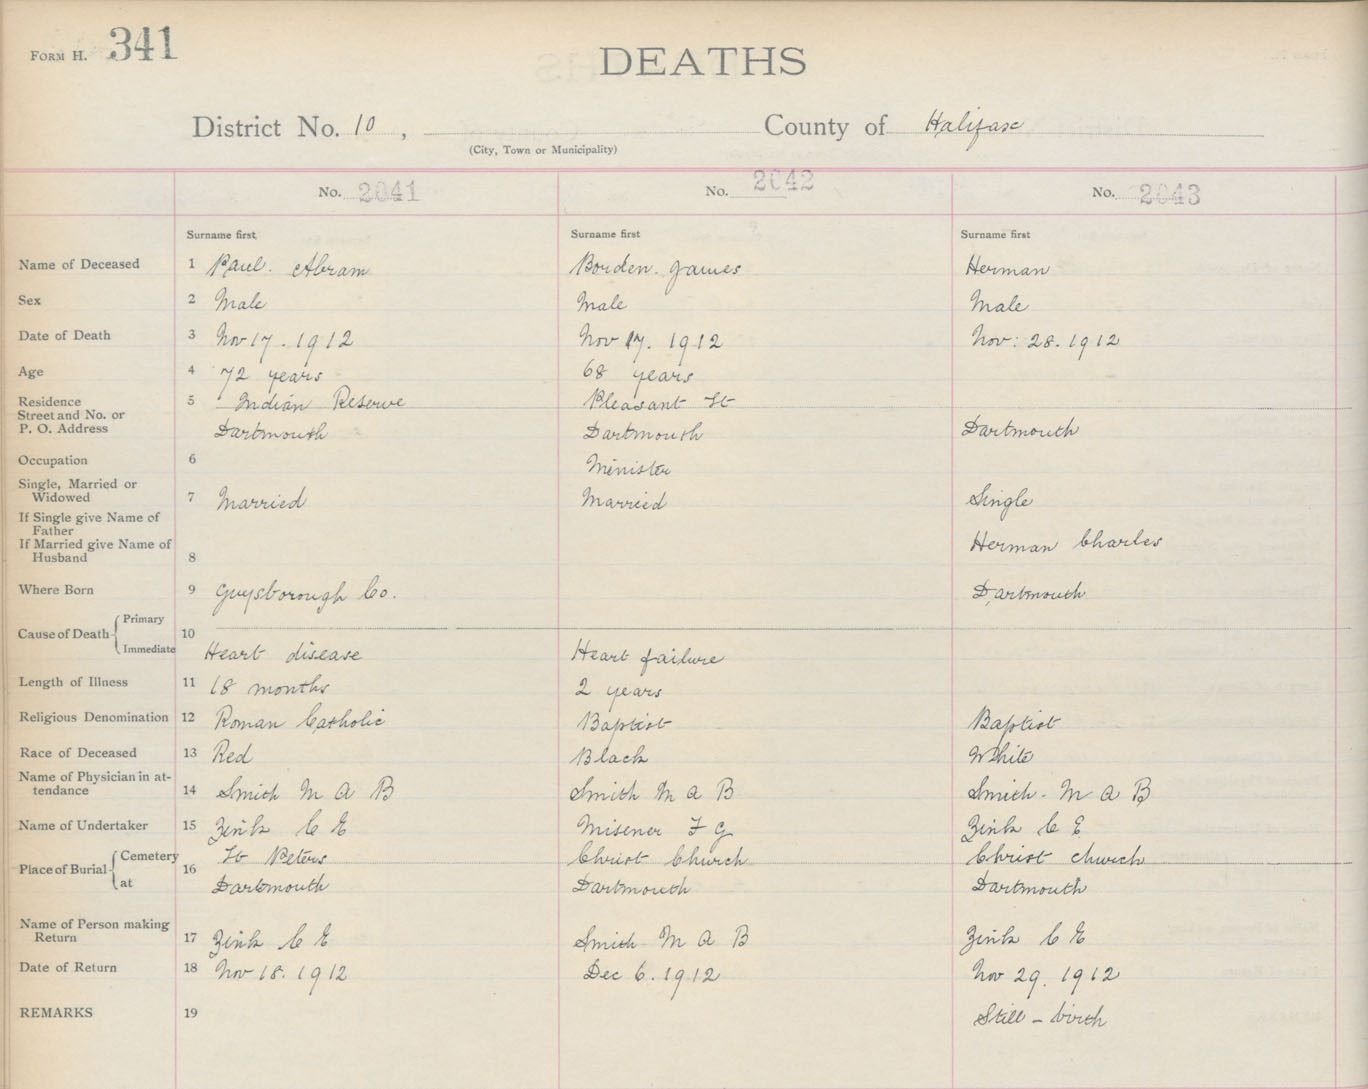 FORM H. 341
DEATHS
District No. 10 , County of Halifax
(City, Town or Municipality)
No. 2041 No. 2042 No. 2043
Surname first Surname first Surname first
Name of Deceased 1 Paul. Abram Borden. James Herman
Sex 2 Male Male Male
Date of Death 3 Nov 17. 1912 Nov 17. 1912 Nov: 28. 1912
Age 4 72 years 68 years
Residence 5 Indian Reserve Pleasant St
Street and No. or
P. O. Address Dartmouth Dartmouth Dartmouth
Occupation 6 Minister
Single, Married or
Widowed 7 Married Married Single
If Single give Name of
Father
If Married give Name of Herman Charles
Husband 8
Where Born 9 Guysborough Co. Dartmouth
Cause of Death Primary 10
Immediate Heart disease Heart failure
Length of Illness 11 18 months 2 years
Religious Denomination 12 Roman Catholic Baptist Baptist
Race of Deceased 13 Red Black White
Name of Physician in at-
tendance 14 Smith M A B Smith M A B Smith. M A B
Name of Undertaker 15 Zink C E Misener F G Zink C E
Place of Burial Cemetery 16 St Peters Christ Church Christ church
at Dartmouth Dartmouth Dartmouth
Name of Person making
Return 17 Zink C E Smith M A B Zink C E
Date of Return 18 Nov 18. 1912 Dec 6. 1912 Nov 29. 1912
REMARKS 19 Still - birth